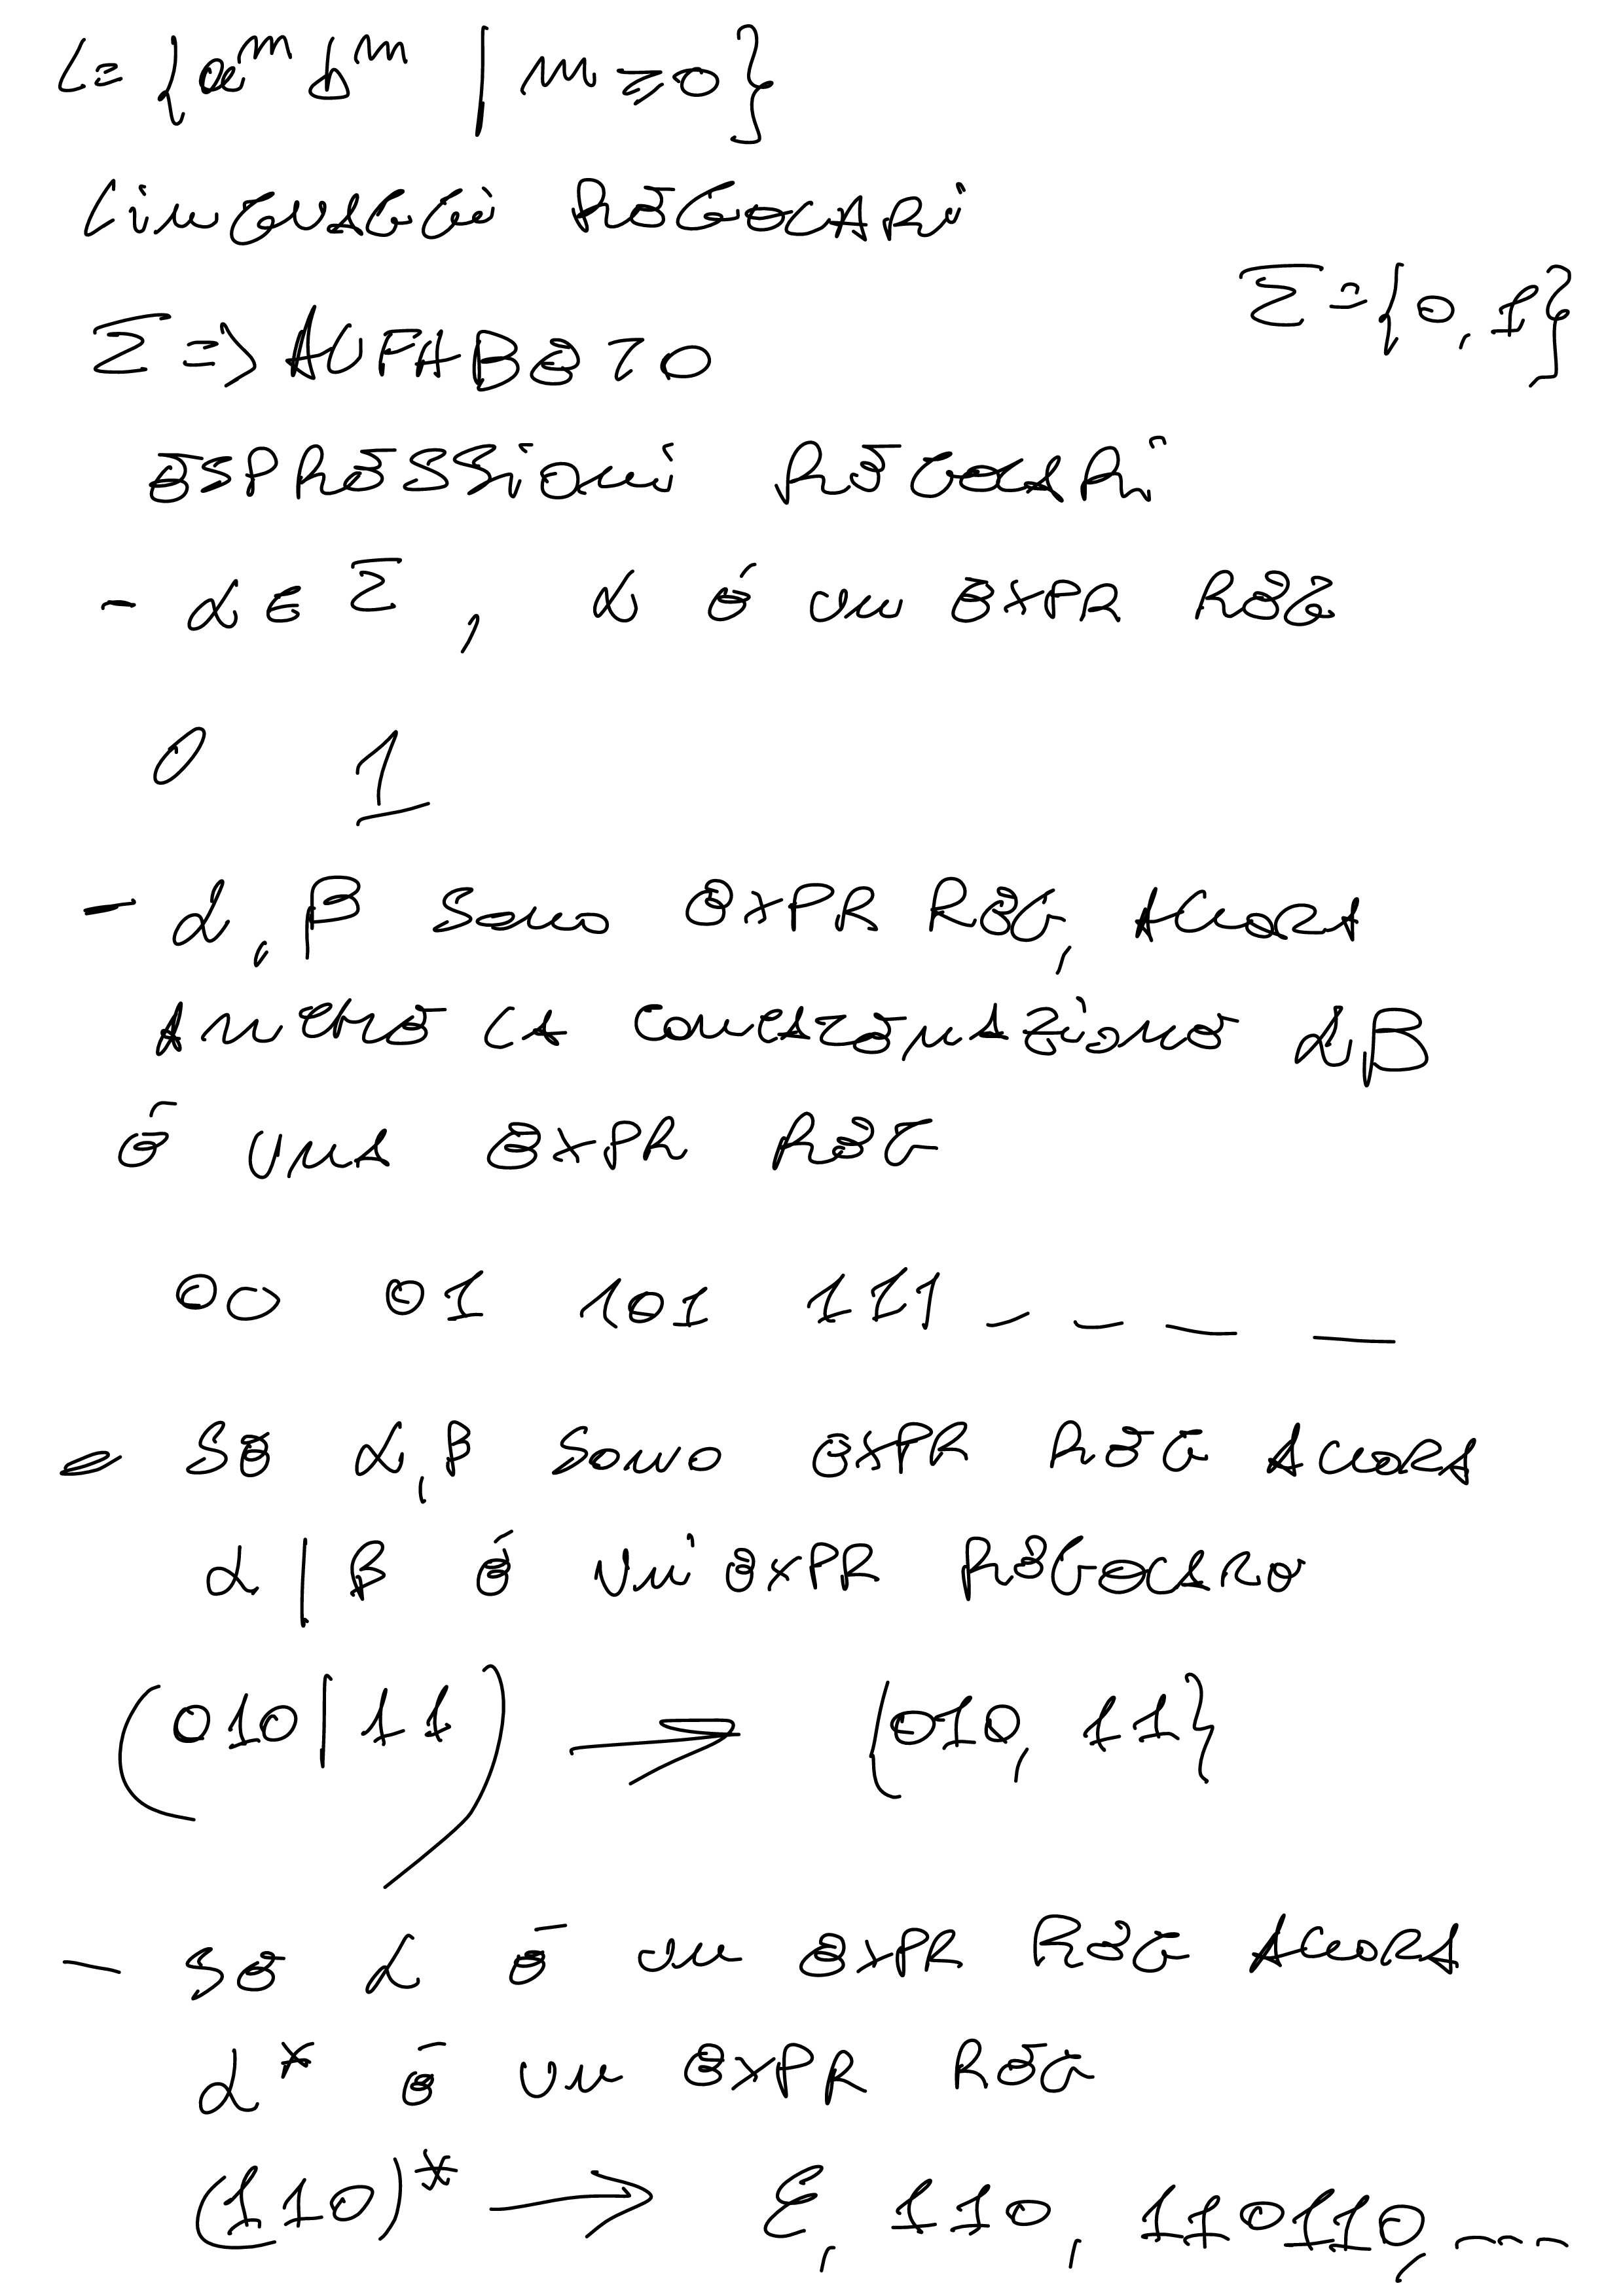 L = {a^n b^n | n ≥ 0}
LINGUAGGI REGOLARI
Σ = {0, 1}
Σ => ALFABETO
ESPRESSIONI REGOLARI
- α ∈ Σ, α È UN EXPR REG
0 1
- α, β SONO EXPR REG, ALLORA
ANCHE LA CONCATENAZIONE αβ
È UNA EXPR REG
00 01 101 111 _ _ _ _
- SE α, β SONO EXPR REG ALLORA
α | β È UN'EXPR REGOLARE
(010|11) → {010, 11}
- SE α È UN EXPR REG ALLORA
α* È UN EXPR REG
(110)* → ε, 110, 110110, ---